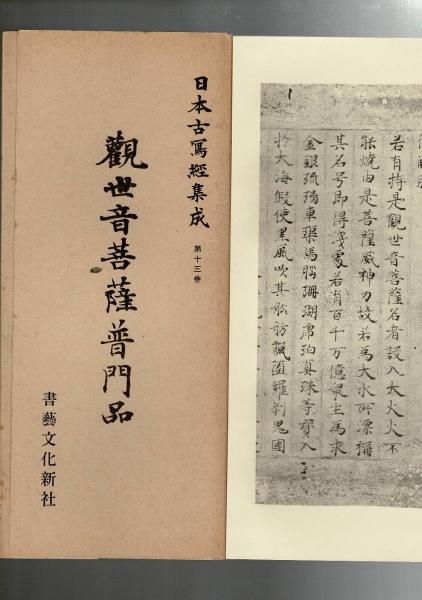 日本古寫經集成
第十三巻
觀世音菩薩普門品
書藝文化新社
若有持是觀世音菩薩名者設入大火火不
能燒由是菩薩威神力故若為大水所漂稱
其名号即得淺處若有百千万億衆生為求
金銀琉璃車𤦲馬腦珊瑚虎珀真珠等寶入
於大海假使黒風吹其舩舫飄堕羅刹鬼國